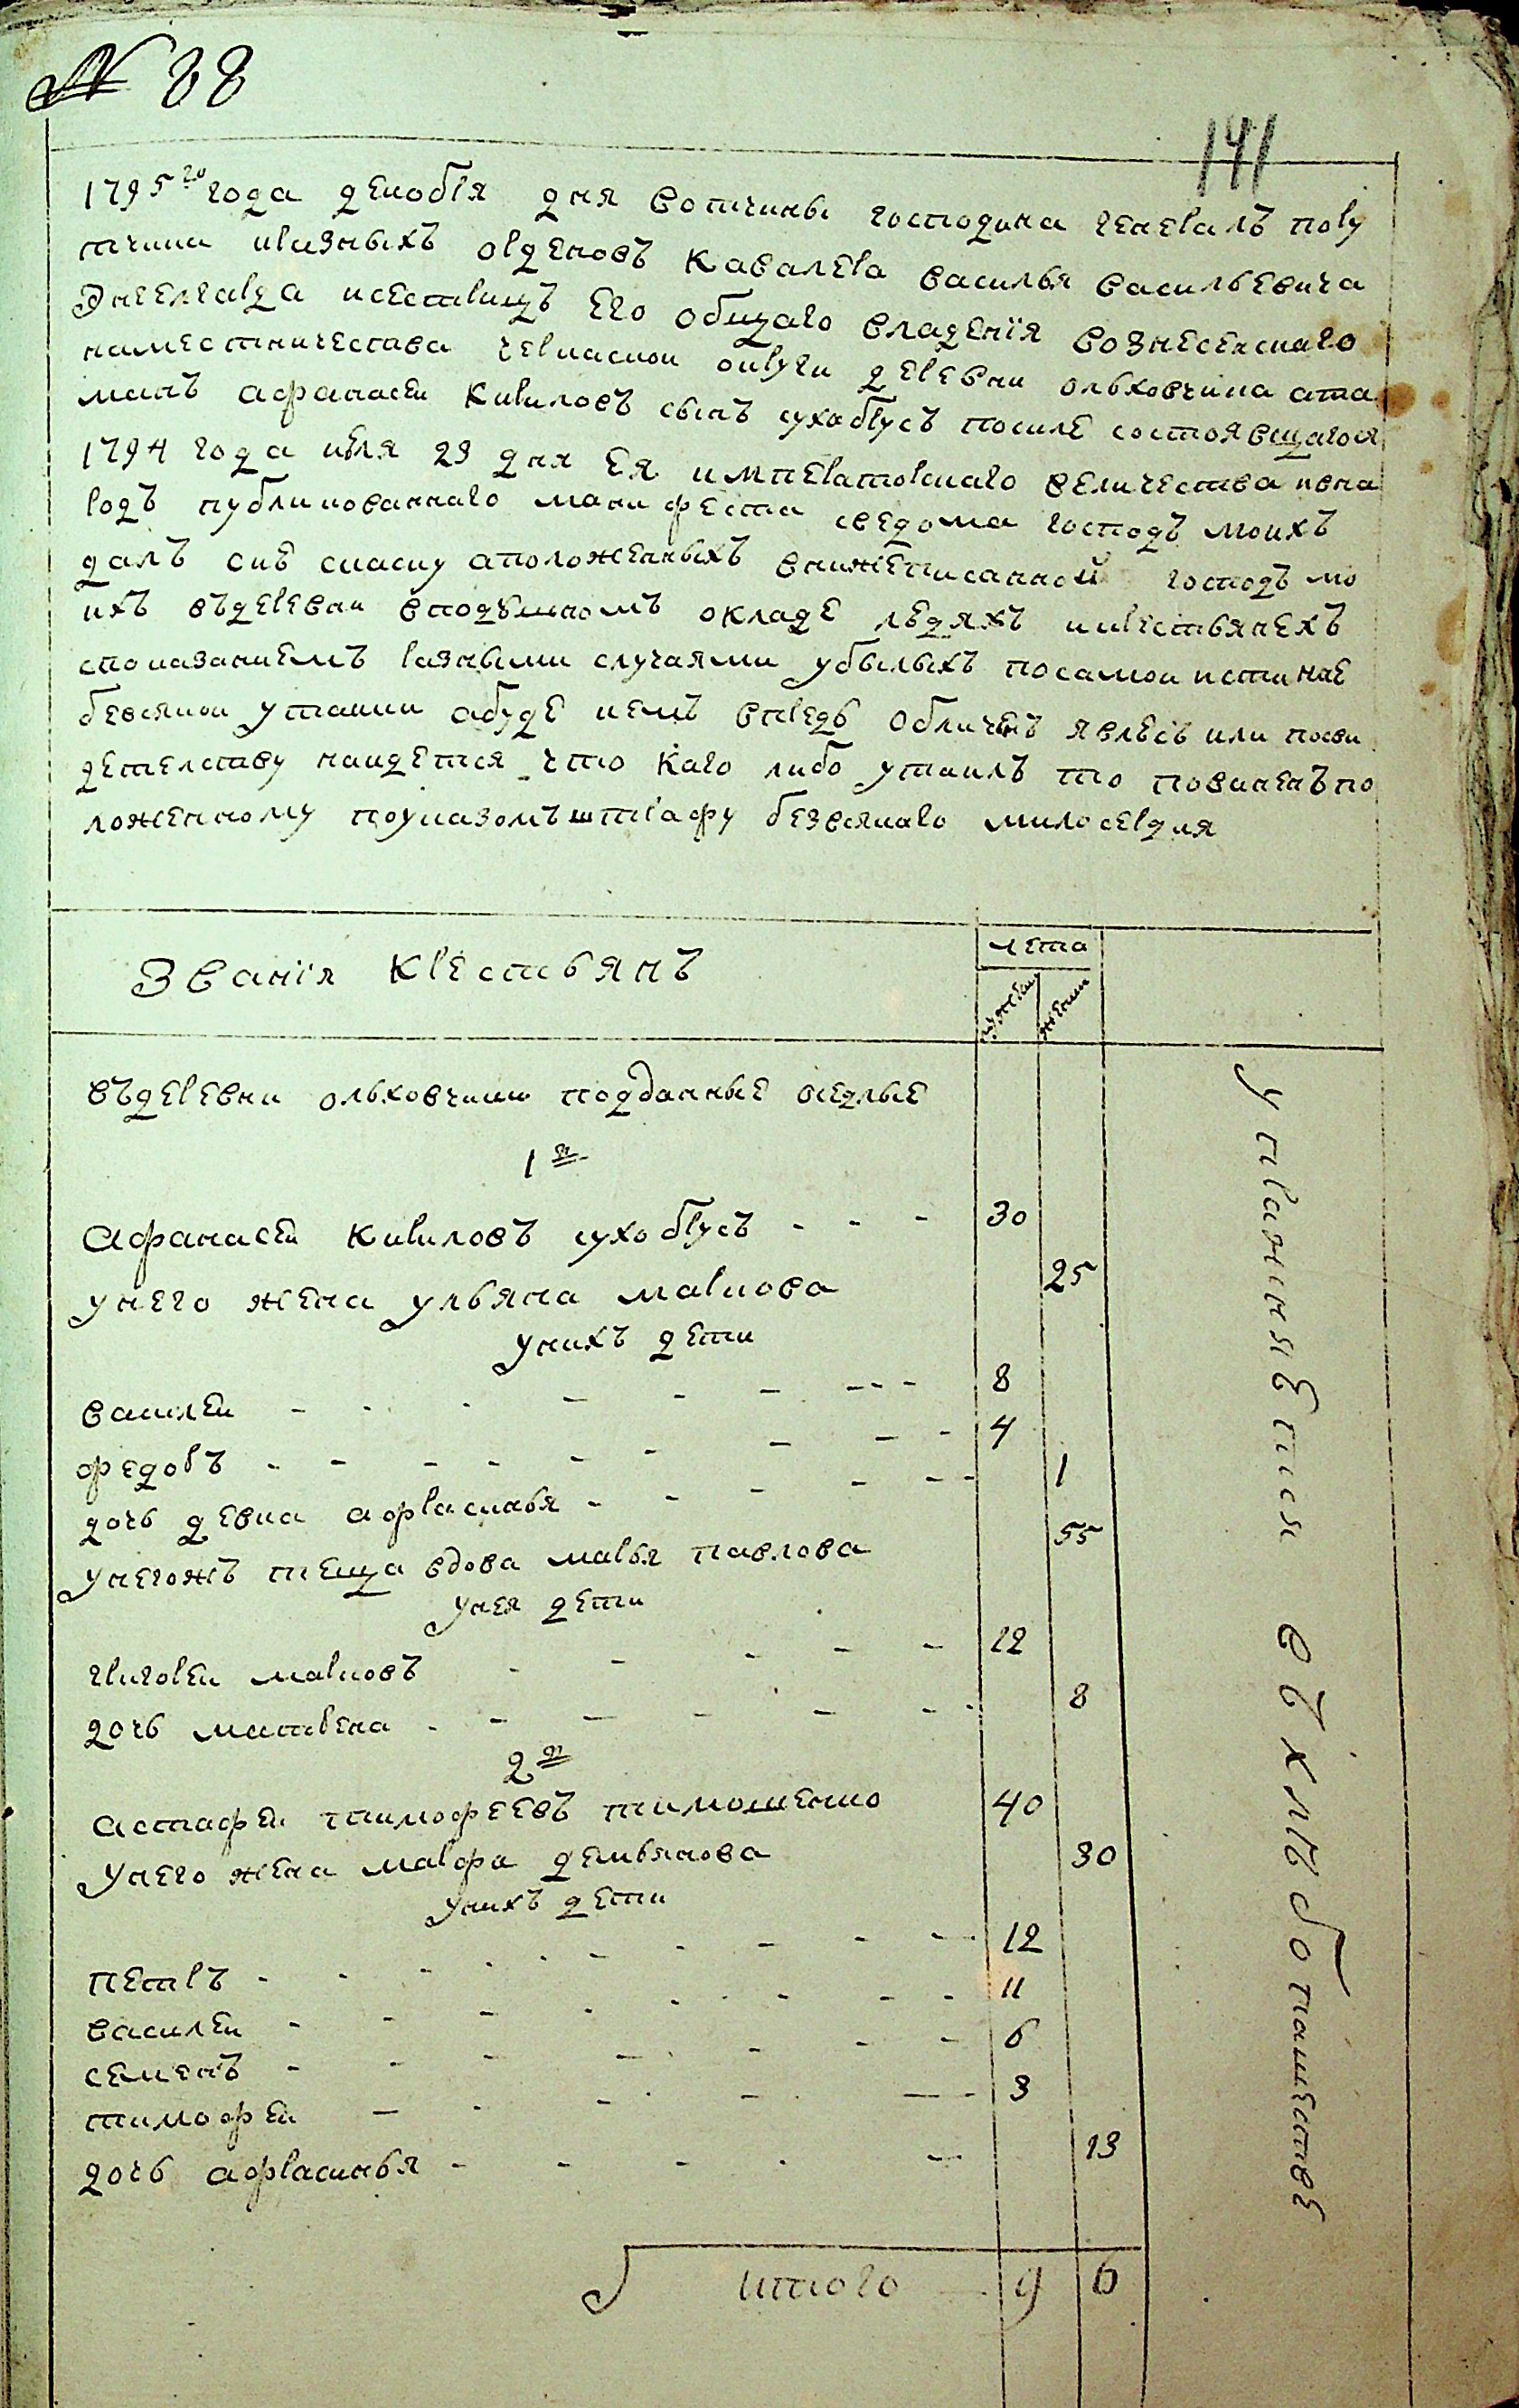 № 88
141
1795го года декабря дня вотчины господина генералъ пору
тчика иразныхъ орденовъ кавалера василья васильевича
Энгелгарда исестрицъ его общаго владения вознесенскаго
наместничества черкаскои округи деревни ольховчика ата
манъ афанасеи Кириловъ сынъ сухобрусъ посиле состоявщагося
1794 года июня 23 дня Ея императорскаго величества ивна
родъ публикованнаго манифеста сведома господъ моихъ
далъ сие скаску аположенныхъ внижеписанной господъ мо
ихъ въдеревни вподушномъ окладе людяхъ икрестьянехъ
споказаниемъ разными случаями убылыхъ посамои истинне
безвсякои утаики абуде кемъ впредь обличенъ явлюсь или посви
детелству наидется что каго либо утаилъ то повиненъ по
ложенному поуказомъ штрафу безвсякаго милосердия
Звания крестьянъ
лета
мужеск
женск
въдеревни ольховчики подданные оседлые
1й
Афанасеи Кириловъ сухобрусъ - - - 30
унего жена ульяна маркова 25
унихъ дети
василеи - - - - - - - 8
федоръ - - - - - - - - 4
дочь девка афрасинья - - - - - 1
унегожъ теща вдова марья павлова 55
унея дети
григореи марковъ - - - - - 12
дочь матрена - - - - - - 8
2й
астафеи тимофеевъ тимошенко 40
Унего жена марфа демьянова 30
унихъ дети
петръ - - - - - - - - 12
василеи - - - - - - - - 11
семенъ - - - - - - 6
тимофеи - - - - - 3
дочь афрасинья - - - - - 13
итого 9 6
упражняются
въ хлебопашестве